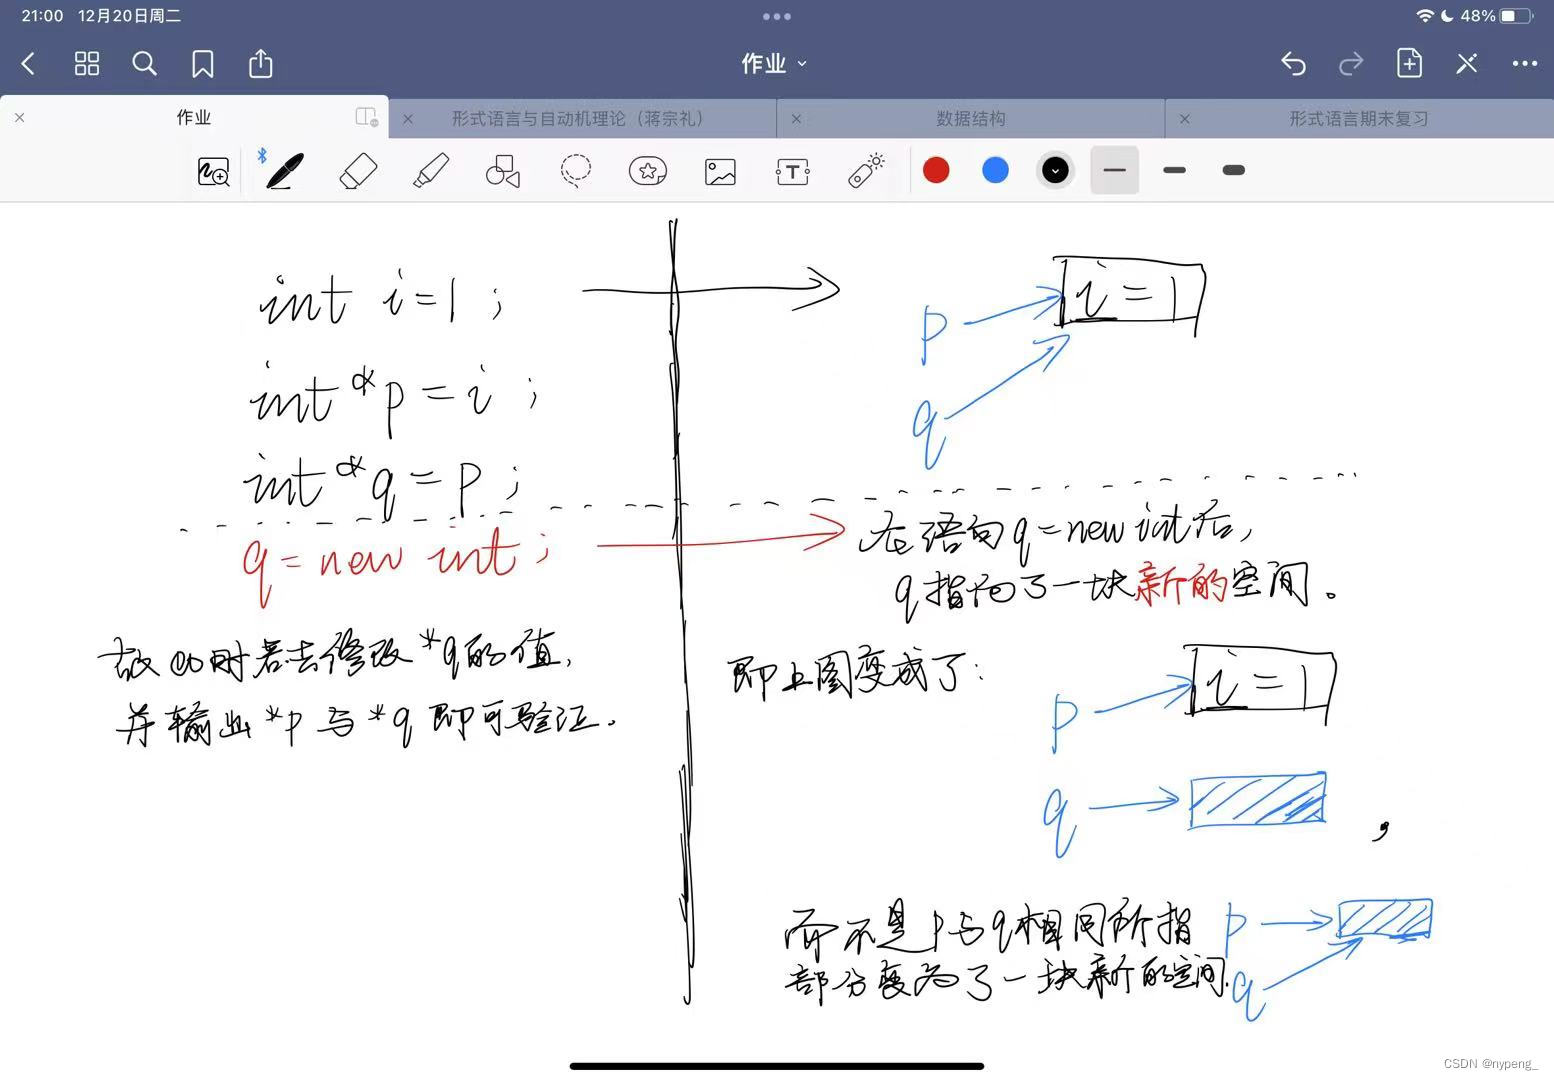 21:00 12月20日周二
48%
作业
作业
形式语言与自动机理论（蒋宗礼）
数据结构
形式语言期末复习
T
int i=1;
int *p=i;
int *q=p;
q=new int;
故此时若去修改*q的值，
并输出*p与*q即可验证.
p
q
i=1
在语句q=new int后，
q指向了一块新的空间。
即上图变成了：
p
i=1
q
，
而不是p与q相同所指
部分变为了一块新的空间.
p
q
CSDN @nypeng_